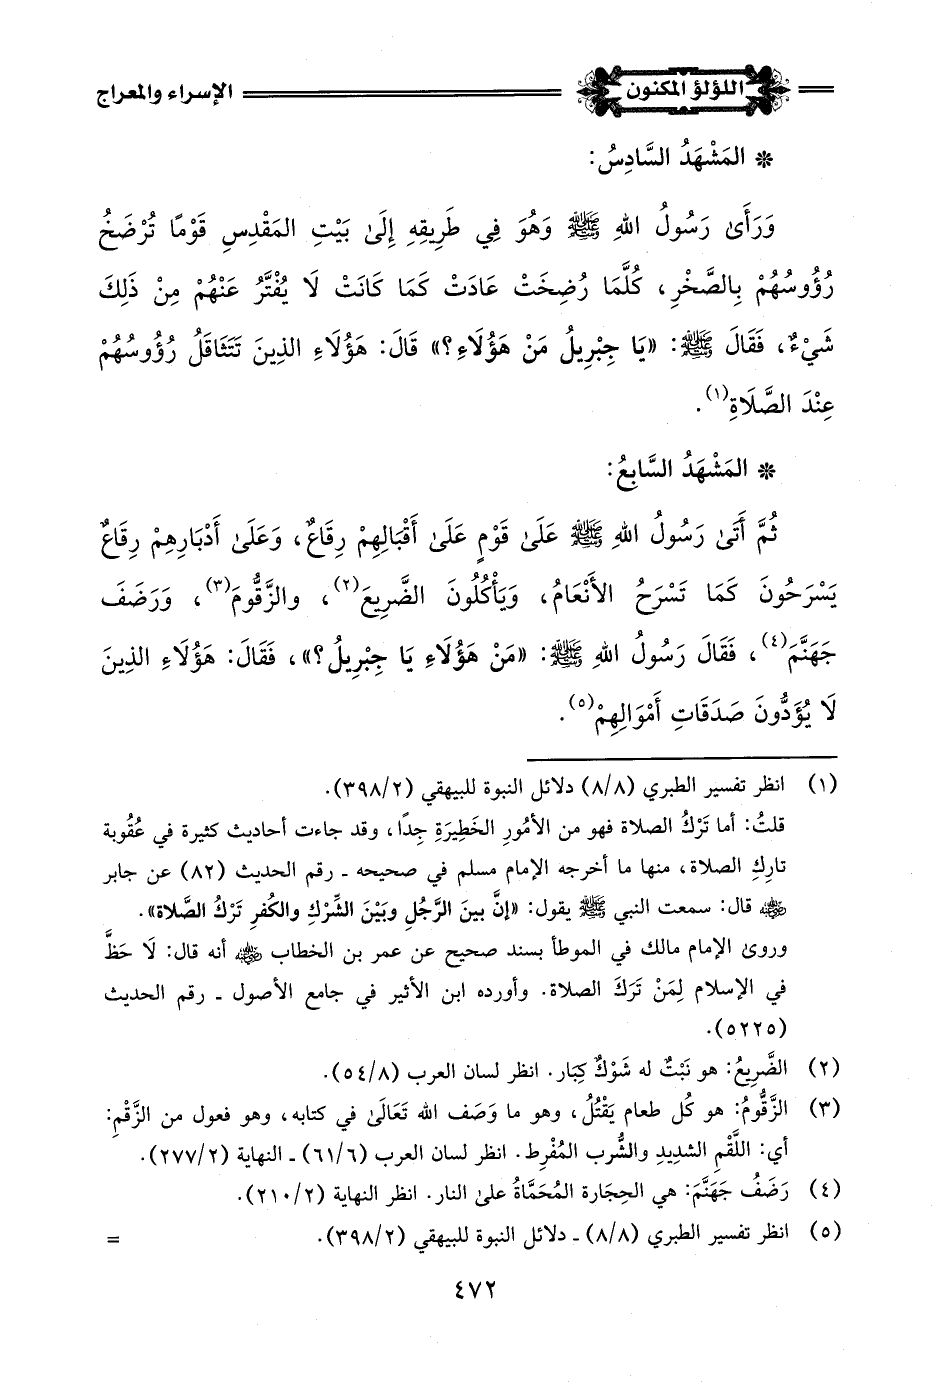 اللؤلؤ المكنون
الإسراء والمعراج
* المَشْهَدُ السَّادِسُ:
وَرَأَىٰ رَسُولُ اللهِ ﷺ وَهُوَ فِي طَرِيقِهِ إِلَىٰ بَيْتِ المَقْدِسِ قَوْمًا تُرْضَخُ
رُؤُوسُهُمْ بِالصَّخْرِ، كُلَّمَا رُضِخَتْ عَادَتْ كَمَا كَانَتْ لَا يُفْتَّرُ عَنْهُمْ مِنْ ذَلِكَ
شَيْءٌ، فَقَالَ ﷺ: «يَا جِبْرِيلُ مَنْ هَؤُلَاءِ؟» قَالَ: هَؤُلَاءِ الذِينَ تَتَثَاقَلُ رُؤُوسُهُمْ
عِنْدَ الصَّلَاةِ(١).
* المَشْهَدُ السَّابِعُ:
ثُمَّ أَتَىٰ رَسُولُ اللهِ ﷺ عَلَىٰ قَوْمٍ عَلَىٰ أَقْبَالِهِمْ رِقَاعٌ، وَعَلَىٰ أَدْبَارِهِمْ رِقَاعٌ
يَسْرَحُونَ كَمَا تَسْرَحُ الأَنْعَامُ، وَيَأْكُلُونَ الضَّرِيعَ(٢)، والزَّقُّومَ(٣)، وَرَضَفَ
جَهَنَّمَ(٤)، فَقَالَ رَسُولُ اللهِ ﷺ: «مَنْ هَؤُلَاءِ يَا جِبْرِيلُ؟»، فَقَالَ: هَؤُلَاءِ الذِينَ
لَا يُؤَدُّونَ صَدَقَاتِ أَمْوَالِهِمْ(٥).
(١) انظر تفسير الطبري (٨/٨) دلائل النبوة للبيهقي (٣٩٨/٢).
قلتُ: أما تَرْكُ الصلاة فهو من الأمُورِ الخَطِيرَةِ جِدًا، وقد جاءت أحاديث كثيرة في عقُوبة
تارِكِ الصلاة، منها ما أخرجه الإمام مسلم في صحيحه ـ رقم الحديث (٨٢) عن جابر
رضي الله عنه قال: سمعت النبي ﷺ يقول: «إنَّ بينَ الرَّجُلِ وبَيْنَ الشِّرْكِ والكُفرِ تَرْكُ الصَّلاة».
وروىٰ الإمام مالك في الموطأ بسند صحيح عن عمر بن الخطاب رضي الله عنه أنه قال: لَا حَظَّ
في الإسلام لِمَنْ تَرَكَ الصلاة. وأورده ابن الأثير في جامع الأصول ـ رقم الحديث
(٥٢٢٥).
(٢) الضَّرِيعُ: هو نَبْتٌ له شَوْكٌ كِبَار. انظر لسان العرب (٥٤/٨).
(٣) الزَّقُّومُ: هو كُل طعام يَقْتُلُ، وهو ما وَصَف الله تَعَالَىٰ في كتابه، وهو فعول من الزَّقْمِ:
أي: اللَّقْمِ الشديدِ والشُّرب المُفْرِط. انظر لسان العرب (٦١/٦) ـ النهاية (٢٧٧/٢).
(٤) رَضَفُ جَهَنَّمَ: هي الحِجَارة المُحَمَّاةُ علىٰ النار. انظر النهاية (٢١٠/٢).
(٥) انظر تفسير الطبري (٨/٨) ـ دلائل النبوة للبيهقي (٣٩٨/٢). =
٤٧٢